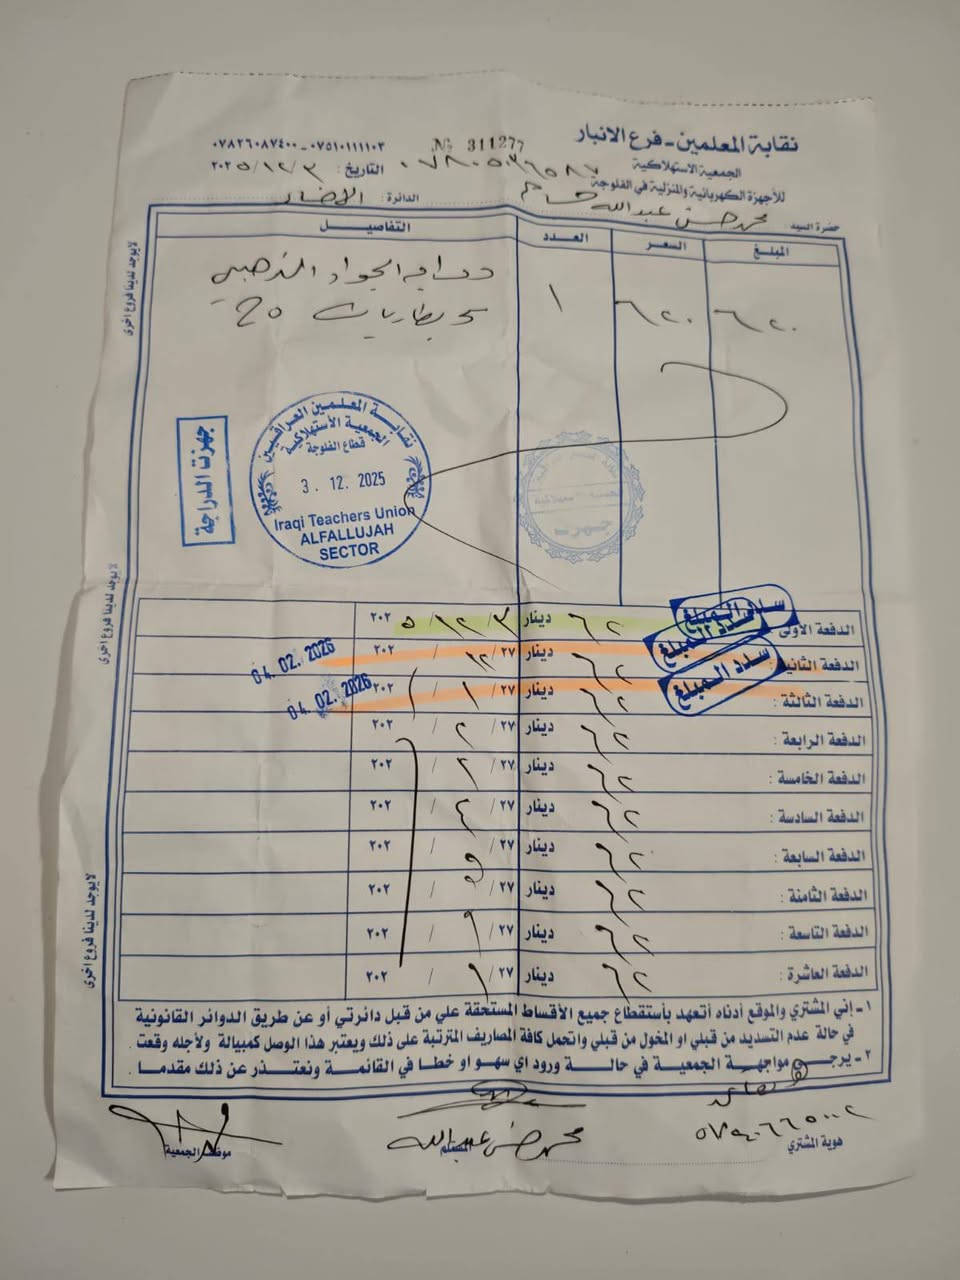 نقابة المعلمين - فرع الانبار
الجمعية الاستهلاكية
للأجهزة الكهربائية والمنزلية في الفلوجة
№ 311277
٠٧٥١٠١١١١٠٣ - ٠٧٨٢٦٠٨٧٤٠٠
التاريخ : ٣ / ١٢ / ٢٠٢٥
حضرة السيد : محمد حسن عبدالله حسام
الدائرة :
المبلغ السعر العدد التفاصيل
٦٢٠ ٦٢٠ ١ دراجة الجواد الذهبي
بطاريات 20
نقابة المعلمين العراقيين
الجمعية الأستهلاكية
قطاع الفلوجة
3 . 12. 2025
Iraqi Teachers Union
ALFALLUJAH
SECTOR
جهزت الدراجة
الدفعة الاولى ٦٢ دينار ٣ / ١٢ / ٢٠٢٥ سدد المبلغ
الدفعة الثانية : ٦٢ دينار ٢٧ / ١٢ / ٢٠٢ سدد المبلغ 04. 02. 2026
الدفعة الثالثة : ٦٢ دينار ٢٧ / ١ / ٢٠٢ سدد المبلغ 04. 02. 2026
الدفعة الرابعة : ٦٢ دينار ٢٧ / ٢ / ٢٠٢
الدفعة الخامسة : ٦٢ دينار ٢٧ / ٣ / ٢٠٢
الدفعة السادسة : ٦٢ دينار ٢٧ / ٤ / ٢٠٢
الدفعة السابعة : ٦٢ دينار ٢٧ / ٥ / ٢٠٢
الدفعة الثامنة : ٦٢ دينار ٢٧ / ٢٠٢
الدفعة التاسعة : ٦٢ دينار ٢٧ / ٢٠٢
الدفعة العاشرة : ٦٢ دينار ٢٧ / ٢٠٢
١ - إني المشتري والموقع أدناه أتعهد بأستقطاع جميع الأقساط المستحقة علي من قبل دائرتي أو عن طريق الدوائر القانونية
في حالة عدم التسديد من قبلي او المخول من قبلي واتحمل كافة المصاريف المترتبة على ذلك ويعتبر هذا الوصل كمبيالة ولأجله وقعت .
٢ - يرجى مواجهة الجمعية في حالة ورود اي سهو او خطا في القائمة ونعتذر عن ذلك مقدما .
هوية المشتري
المستلم
محمد حسن عبدالله
موظف الجمعية
لايوجد لدينا فروع اخرى
لايوجد لدينا فروع اخرى
لايوجد لدينا فروع اخرى